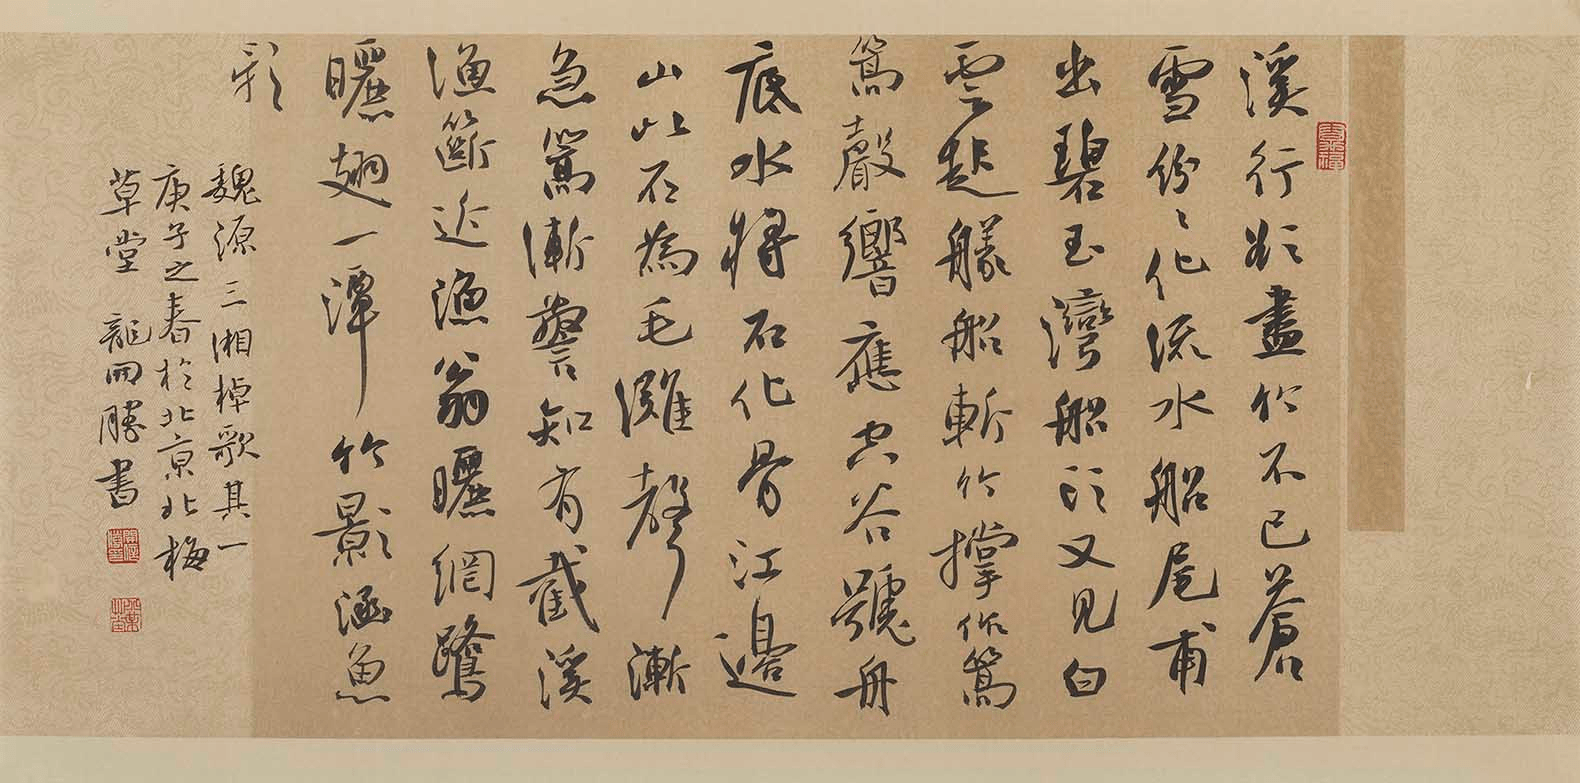 溪行欲盡竹不已蒼
雪紛〻化流水船尾甫
出碧玉灣船頭又見白
雲起艤船斬竹撐作篙
篙聲響應空谷號舟
底水將石化骨江邊
山以石為毛灘聲漸
急篙漸警知有截溪
漁籪近漁翁曬網鷺
曬翅一潭竹影涵魚
彩
魏源三湘棹歌其一
庚子之春於北京北梅
草堂 龍開勝書